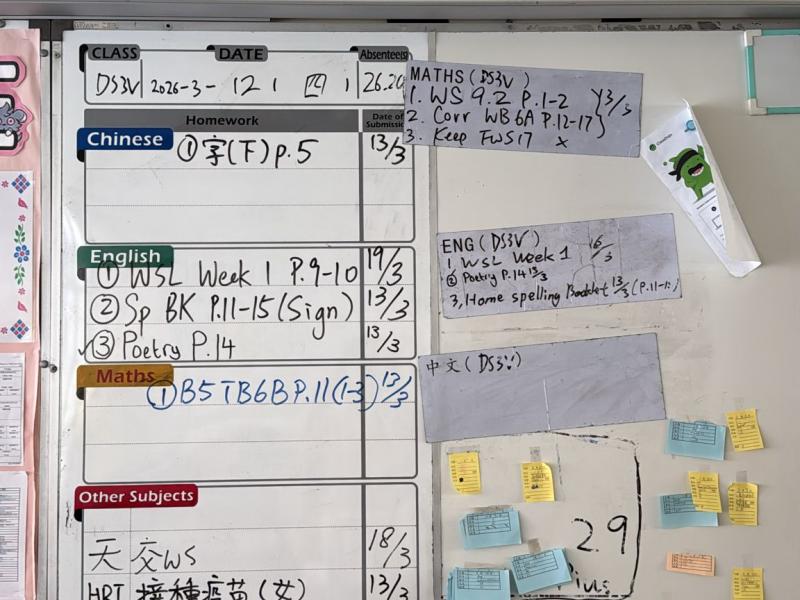 CLASS DATE Absentee(s)
DS3V 2026-3-12 四 26.20
Homework Date of Submiss
Chinese
① 字(下) P.5 13/3
English
① WSL Week 1 P.9-10 19/3
② Sp BK P.11-15 (Sign) 13/3
✓③ Poetry P.14 13/3
Maths
① B5 TB6B P.11 (1-3) 13/3
Other Subjects
天 交WS 18/3
HRT 接種疫苗(女) 13/3
MATHS (DS3V)
1. WS 9.2 P.1-2
2. Corr WB 6A P.12-17 } 13/3
3. Keep FWS17 x
ENG (DS3V)
1 WSL Week 1 16/3
② Poetry P.14 13/3
3, Home spelling Booklet 13/3 (P.11-1
中文 (DS3V)
29